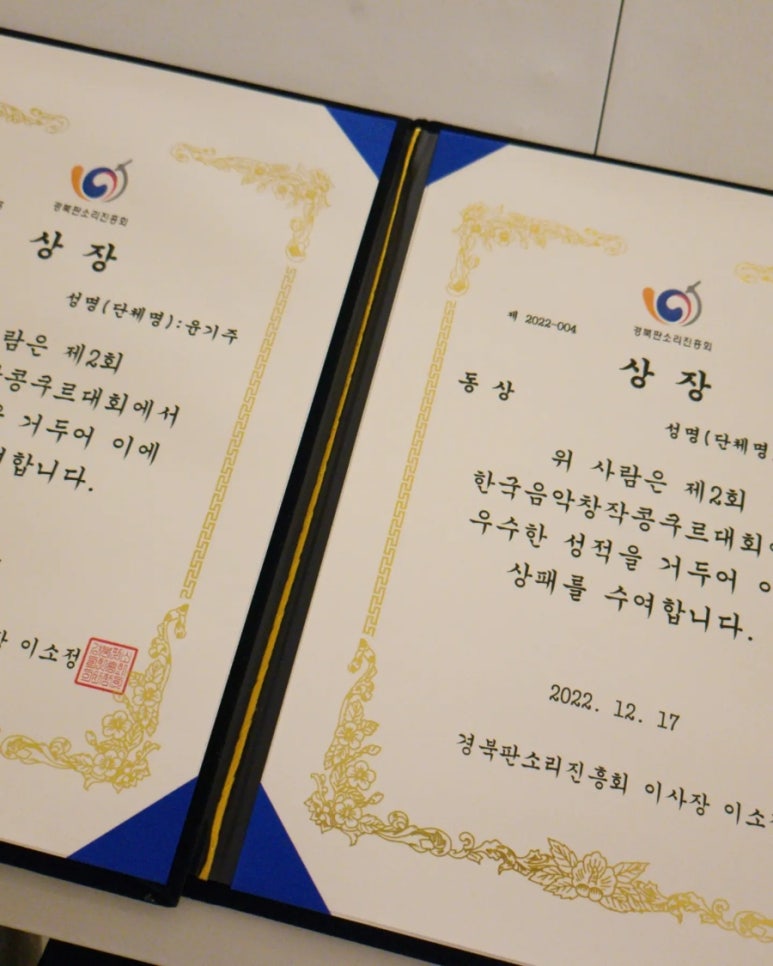 경북판소리진흥회
상 장
성명(단체명):윤기주
람은 제2회
콩쿠르대회에서
거두어 이에
합니다.
이소정
제 2022-004
경북판소리진흥회
상 장
동 상
성명(단체명
위 사람은 제2회
한국음악창작콩쿠르대회
우수한 성적을 거두어
상패를 수여합니다.
2022. 12. 17
경북판소리진흥회 이사장 이소